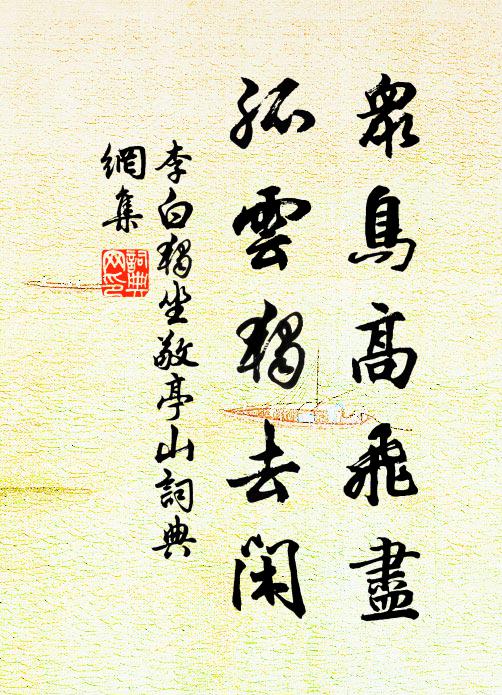 眾鳥高飛盡
孤雲獨去閑
李白獨坐敬亭山詞典
網集
詞典
网印